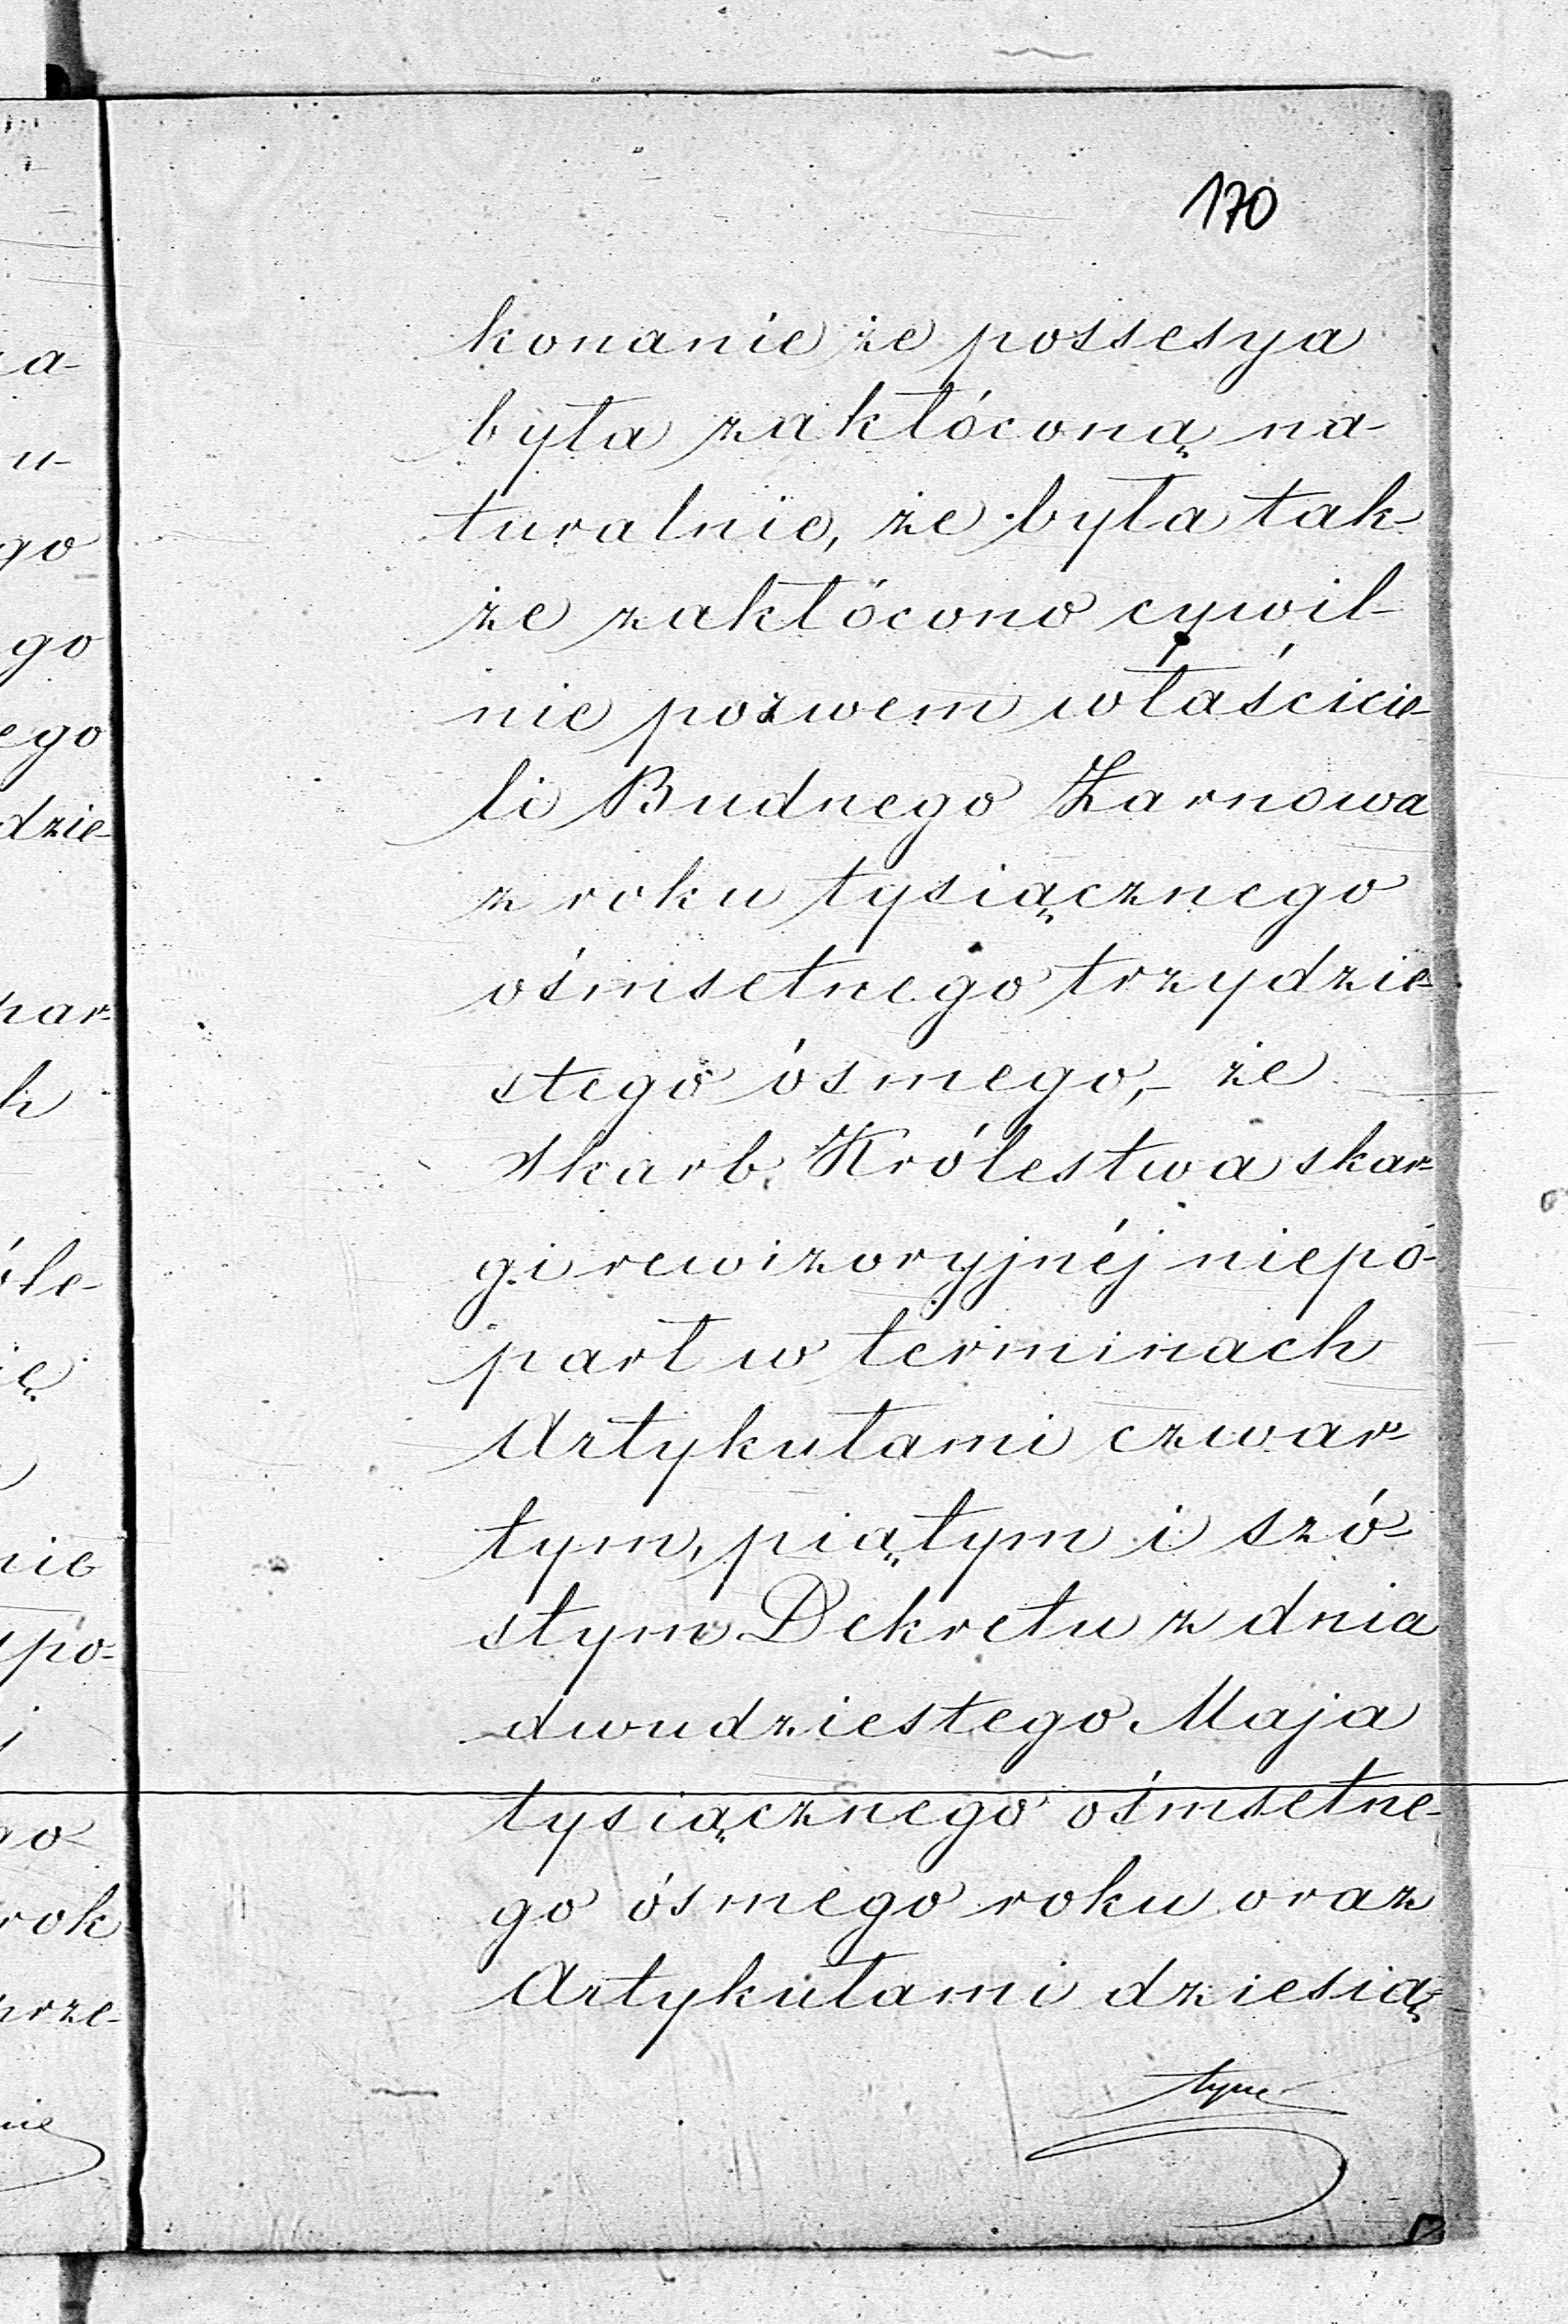 170
konanie że possesya
była zakłóconą na-
turalnie, że była tak-
że zakłócono cywil-
nie pozwem właścicie-
li Budnego Żarnowa
z roku tysiącznego
ośmsetnego trzydzie-
stego ósmego,- że
Skarb Królestwa skar-
gi rewizoryjnéj niepo-
parł w terminach
Artykułami czwar-
tym, piątym i szó-
stym Dekretu z dnia
dwudziestego Maja
tysiącznego ośmsetne-
go ósmego roku oraz
Artykułami dziesią-
tym
a-
u-
go
go
ego
dzie-
par-
h
óle-
ię
nie
po-
j
go
rok
prze-
nie